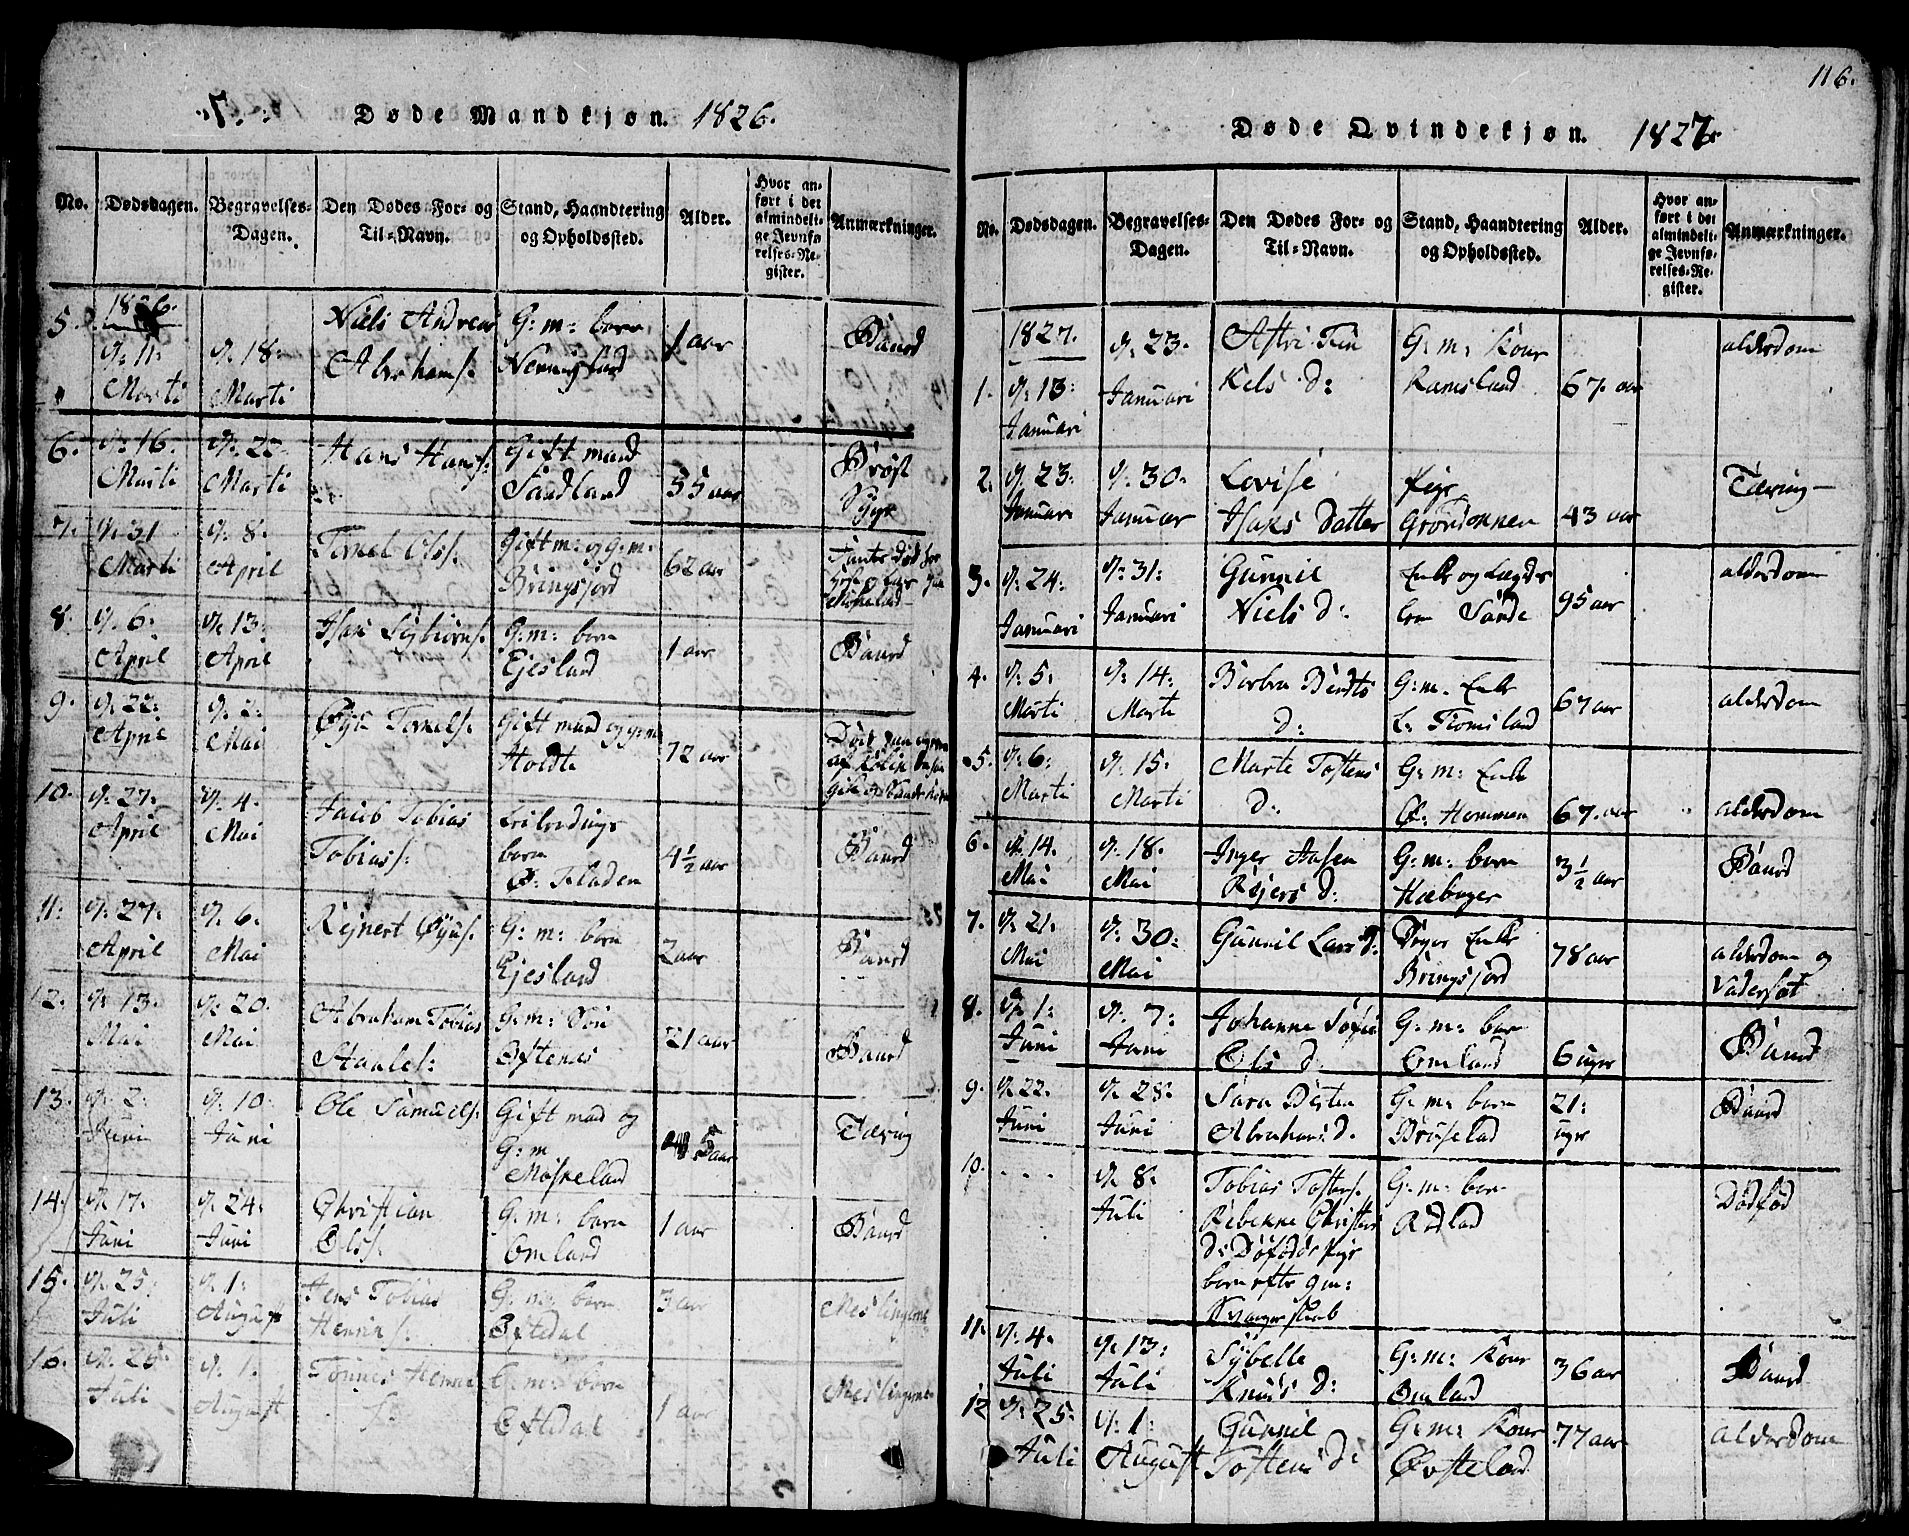 7.
Døde Mandkjøn. 1826.
No. Dødsdagen. Begravelses-Dagen. Den Dødes For- og Til-Navn. Stand, Haandtering og Opholdssted. Alder. Hvor anført i det almindelige Jevnførelses-Register. Anmærkninger.
1826.
5. d: 11: Marti d: 18: Marti Niels Andreas Abrahams: G: m: barn 1 aar Baard
6. d: 16. Marti d: 22 Marti Hans Hans: Gift mand Sandland 55 aar Brøst Syge
7. d: 31 Marti d: 8. April Ternel Ols: Gift m: og G: m: Bringsjord 62 aar
8. d: 6: April d: 13: April Isak G: m: barn Ejesland 1 aar Baard
9. d: 22: April d: 2: Mai Øye Ternels: Gift mand og g: m Holdte 72 aar
10. d: 27: April d: 4. Mai Jacob Tobias Tobias: barn Ø: Fladen 4½ aar Baard
11: d: 27: April d: 6. Mai Rejnert Øyus: G: m: barn Ejesland 2 aar Baard
12. d: 13. Mai d: 20. Mai Abraham Tobias Staales: G: m: Søn Øftenes 21 aar Baard
13. d: 2: Juni d: 10: Juni Ole Samuels: Gift mand og G: m Møskeland 5 aar Tæring
14. d: 17: Juni d: 24: Juni Christian Ols: G: m: barn Omland 1 aar Baard
15. d: 25: Juli d: 1: August Jens Tobias Henrik s: G: m: barn Øftedal 3 aar Meslingerne
16. d: 25. Juli d: 1. August Tønnes Henrik s: G: m: barn Øftedal 1 aar Meslingerne
116.
Døde Qvindekjøn. 1827
No. Dødsdagen. Begravelses-Dagen. Den Dødes For- og Til-Navn. Stand, Haandtering og Opholdssted. Alder. Hvor anført i det almindelige Jevnførelses-Register. Anmærkninger.
1827.
1. d: 13: Januari d: 23. Januari Astri Tin Kels d: G: m: Kone Ramsland 67. aar alderdom
2. d: 23: Januari d: 30. Januar Lovise Isaks Datter Pige Grøndonnen 43 aar Tæring
3. d: 24: Januari d: 31: Januari Gunnil Niels d: Enke og Sande 95 aar alderdom
4. d: 5. Marti d: 14: Marti Barbra Berdts d: G: m. Enke L: Tiomsland 67 aar alderdom
5. d: 6: Marti d: 15. Marti Marte Tostens d: G: m: Enke Ø: Hommen 67. aar alderdom
6. d: 14. Mai d: 18. Mai Inger Aasen Rejers d: G: m: barn Hæbager 3½ aar Baard
7. d: 21. Mai d: 30: Mai Gunnil Lars d: Enke Bringsjord 78 aar alderdom og Vadersot
8. d: 1: Juni d: 7: Juni Johanne Sofie Ols d: G: m: bar Omland 6 uger Baard
9. d: 22: Juni d: 28: Juni Sara Abrahams d. G: m: barn Brøseland 21: uger Baard
10. - - - d: 8: Juli Tobias Tostens: Rebekke Christens d: Døfødde Pige barn efter 9 m: Svangerskab G: m: bar Rødland Dødfød
11. d: 4. Juli d: 13: Juli Sybelle Knuds d: G: m: Kone Omland 36 aar Baard
12 d: 25. Juli d: 1: August Gunnil Tostens d: G: m: Kone Øvsteland 77 aar alderdom